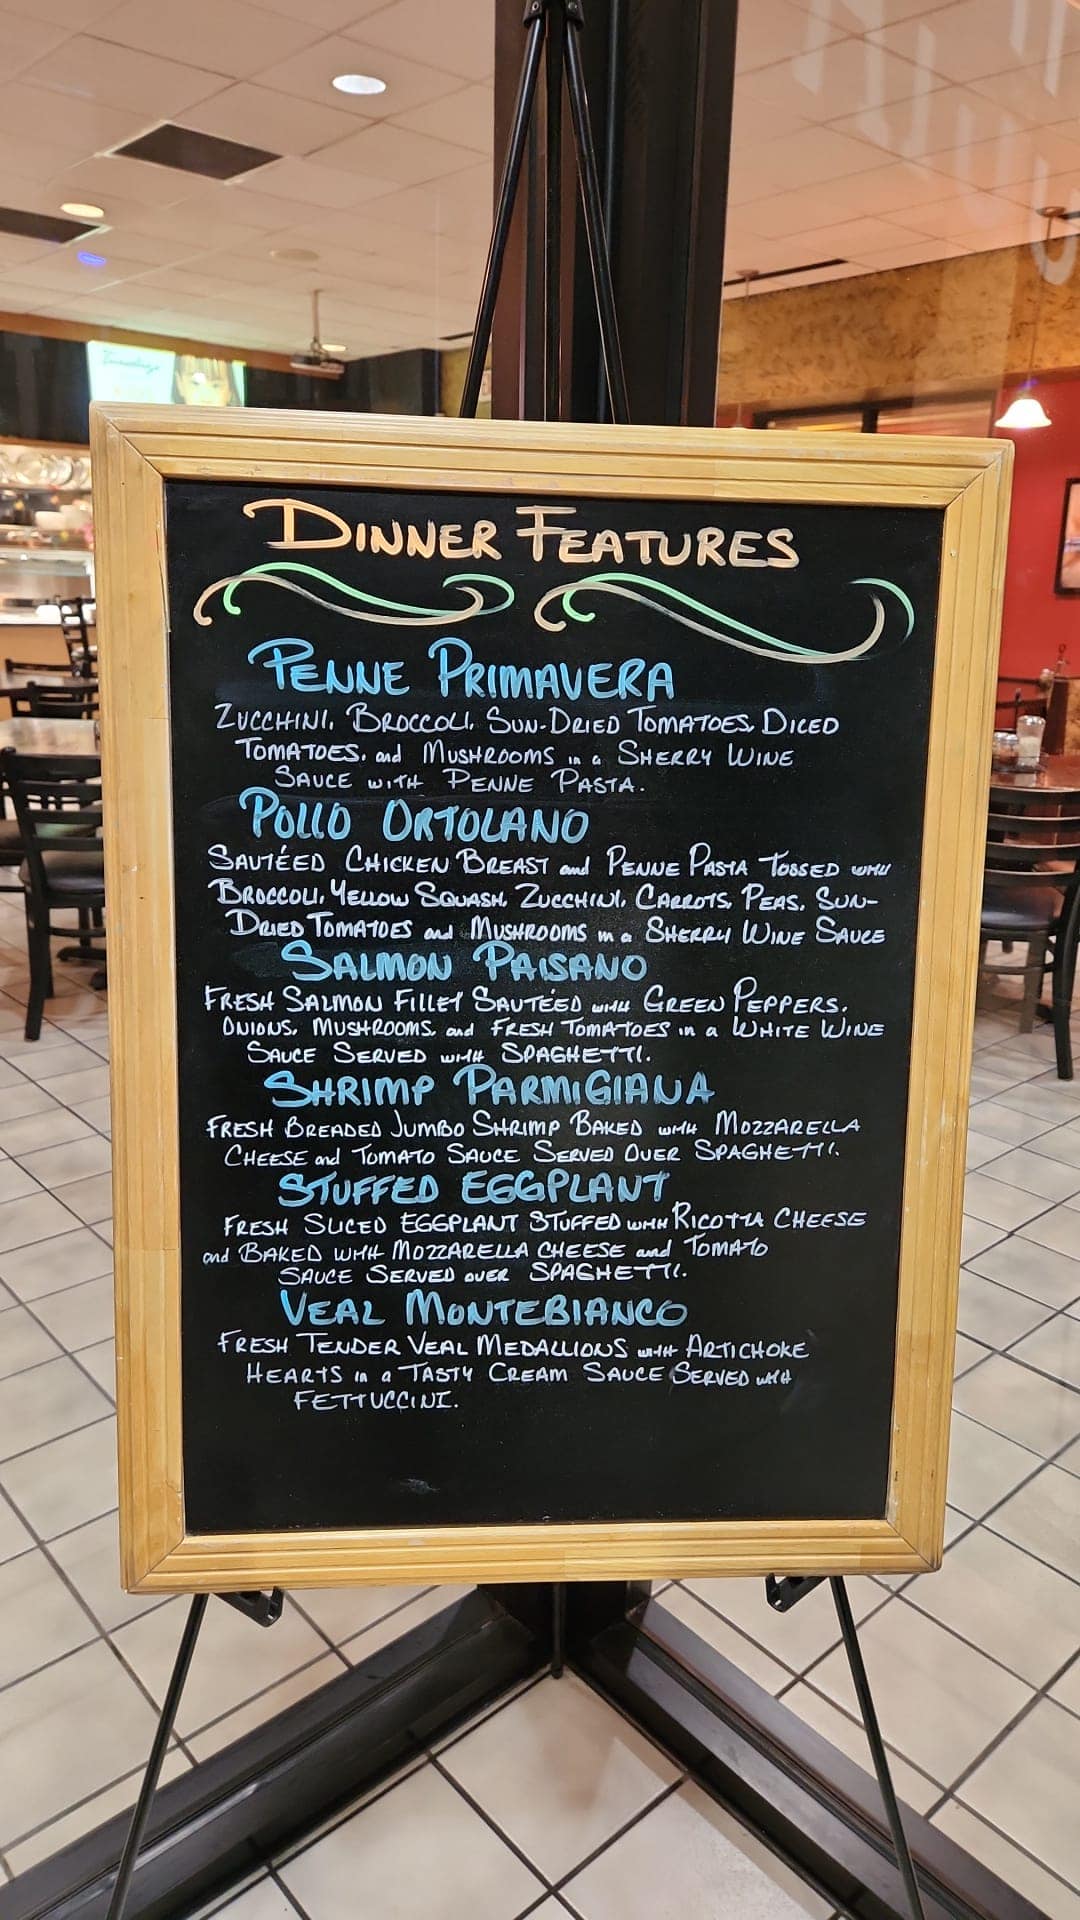 DINNER FEATURES
PENNE PRIMAVERA
ZUCCHINI, BROCCOLI, SUN-DRIED TOMATOES, DICED
TOMATOES, and MUSHROOMS in a SHERRY WINE
SAUCE WITH PENNE PASTA.
POLLO ORTOLANO
SAUTÉED CHICKEN BREAST and PENNE PASTA TOSSED WITH
BROCCOLI, YELLOW SQUASH, ZUCCHINI, CARROTS, PEAS, SUN-
DRIED TOMATOES and MUSHROOMS in a SHERRY WINE SAUCE
SALMON PAISANO
FRESH SALMON FILLET SAUTÉED WITH GREEN PEPPERS,
ONIONS, MUSHROOMS, and FRESH TOMATOES in a WHITE WINE
SAUCE SERVED WITH SPAGHETTI.
SHRIMP PARMIGIANA
FRESH BREADED JUMBO SHRIMP BAKED WITH MOZZARELLA
CHEESE and TOMATO SAUCE SERVED OVER SPAGHETTI.
STUFFED EGGPLANT
FRESH SLICED EGGPLANT STUFFED WITH RICOTTA CHEESE
and BAKED WITH MOZZARELLA CHEESE and TOMATO
SAUCE SERVED OVER SPAGHETTI.
VEAL MONTEBIANCO
FRESH TENDER VEAL MEDALLIONS WITH ARTICHOKE
HEARTS in a TASTY CREAM SAUCE SERVED WITH
FETTUCCINI.